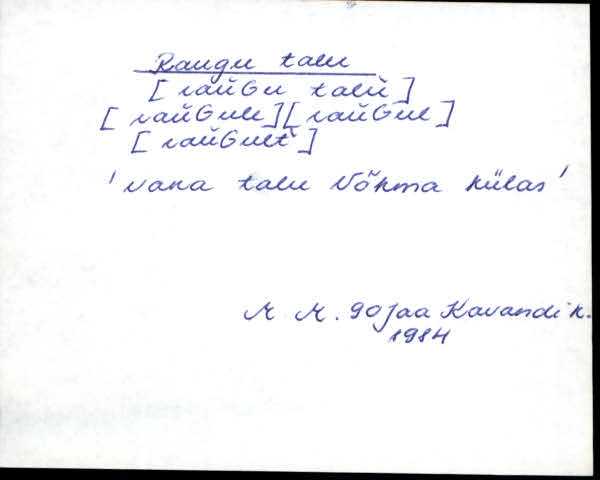 Raugu talu
[raŭGu talù]
[raŭGule][raŭGul]
[raŭGult]
'vana talu Võhma külas'
M. M. 90j Jaa Kavandi k.
1984